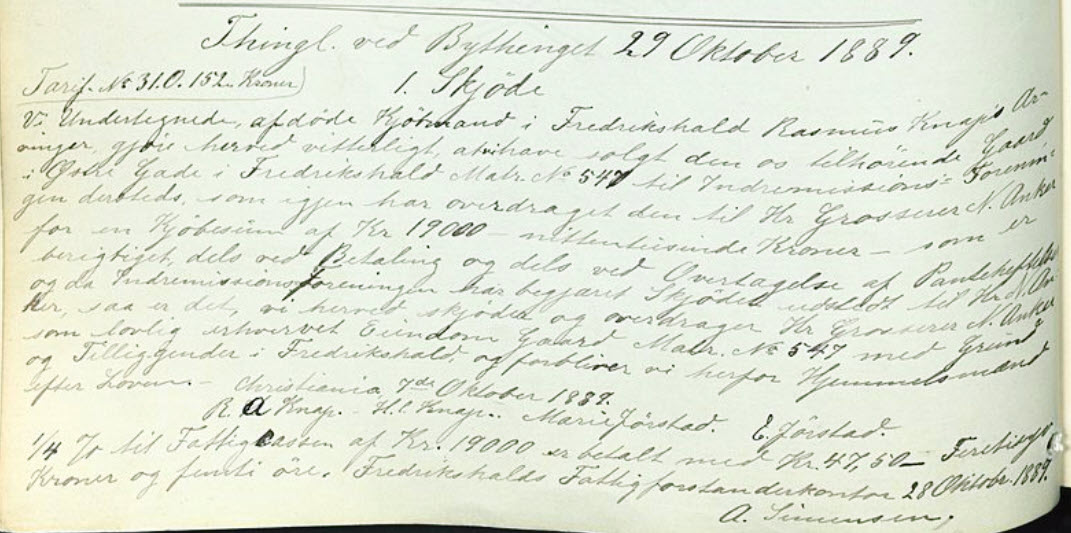 Thingl. ved Bythinget 29 Oktober 1889.
Tarif. No 31.O. 152 Kroner) 1. Skjöde
Vi Undertegnede, afdöde Kjöbmand i Fredrikshald Rasmus Knaps Ar-
vinger, gjöre herved vitterligt, at vi have solgt den os tilhörende Gaard
i Østre Gade i Fredrikshald Matr. No 547 til Indremissions-Forenin-
gen dersteds, som igjen har overdraget den til Hr Grosserer N. Anker
for en Kjöbesum af Kr 19000 – nittentusinde Kroner – som er
berigtiget dels ved Betaling og dels ved Overtagelse af Pantehæftelser
og da Indremissionsforeningen har begjæret Skjödet udstedt til Hr N. An-
ker, saa er det, vi herved skjöder og overdrager Hr Grosserer N. Anker
som lovlig erhvervet Eiendom Gaard Matr. No 547 med Grund
og Tilliggender i Fredrikshald og forbliver vi herfor Hjemmelsmænd
efter Loven. – Christiania 7de Oktober 1889.
R. A Knap. – H.C. Knap. Marie Jörstad. E. Jörstad.
1/4 % til Fattigcassen af Kr. 19000 er betalt med Kr. 47,50 – Firetisyv
Kroner og femti öre. Fredrikshalds Fattigforstanderkontor 28 Oktobr. 1889.
A. Simensen.